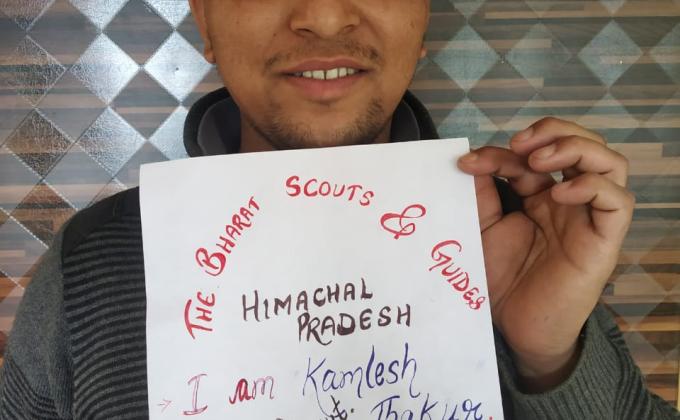 THE BHARAT SCOUTS & GUIDES
HIMACHAL
PRADESH
→ I am Kamlesh
Thakur.